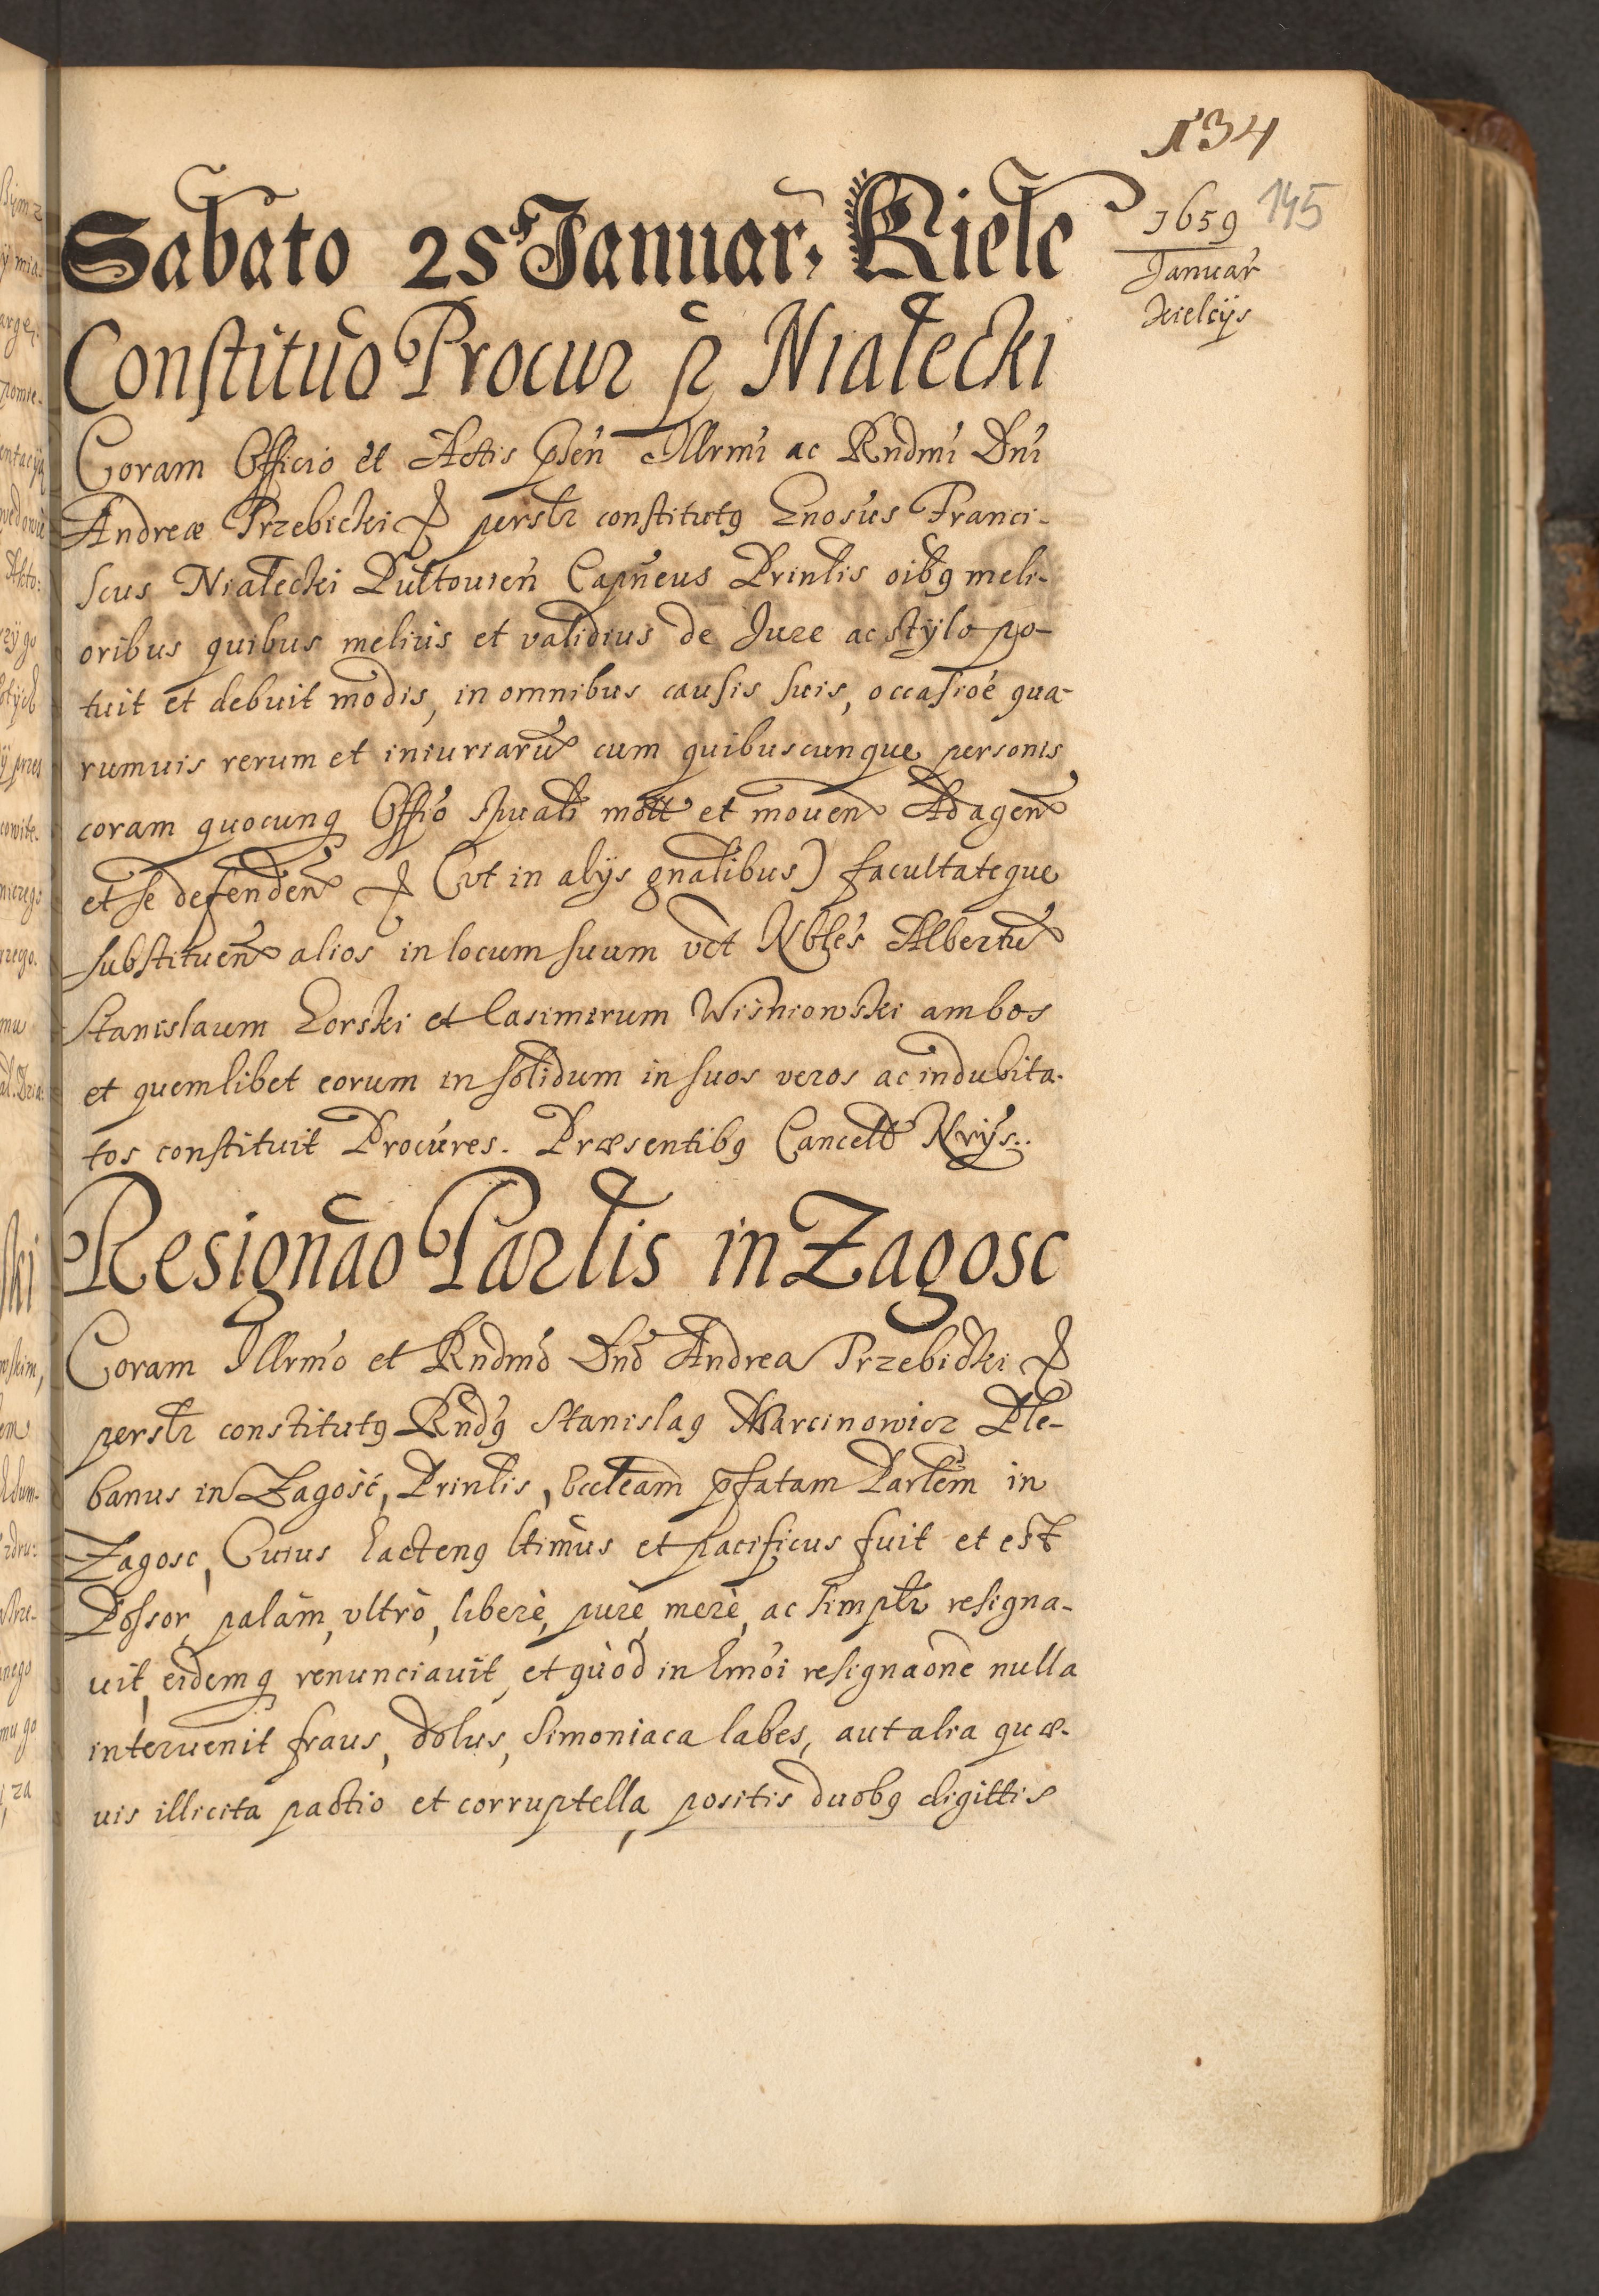 134
145
1659
Januar̃
Kielcijs
Sabato 25 Januar̃. Kielc
Constituõ Procur p̱ Niałecki
Coram Officio et Actis p̃sen̄ Illrm̃i ac Rndm̃i Dn̄i
Andreæ Trzebicki perslr̃ constitutꝗ Gnosus Franci-
scus Niałecki Pultouien̄ Capn̄eus Prinlis oibꝗ meli-
oribus quibus melius et validius de Jure ac stÿlo po-
tuit et debuit modis, in omnibus causis suis, occasioẽ qua-
rumuis rerum et iniuriarũ cum quibuscunque personis
coram quocunq̃ Offio spuali mott et mouen̄ Ad agen̄
et se defenden̄ (vt in alijs gnalibus) facultateque
substituen̄ alios in locum suum vct Nbles Albertũ
Stanislaum Gorski et Casimirum Wiśniowski ambos
et quemlibet eorum in solidum in suos veros ac indubita-
tos constituit Procures. Præsentibꝗ Cancell Nrijs.
Resignao Parlis in Zagosc
Coram Illrm̃o et Rndm̃o Dn̄o Andrea Trzebicki
perslr̃ constitutꝗ Rndꝗ Stanislaꝗ Marcinowicz Ple-
banus in Zagość, Prinlis, Eccleam p̃fatam Parlem in
Zagosc, Cuius hactenꝗ ltimus et pacificus fuit et est
Possor, palàm, vltrò, liberè, purè, merè, ac simplr̃ resigna-
uit, eidemq̃ renunciauit, et quòd in hm̃oi resignaõne nulla
interuenit fraus, dolus, simoniaca labes, aut alia quæ-
uis illicita pactio et corruptella, positis duobꝗ digittis